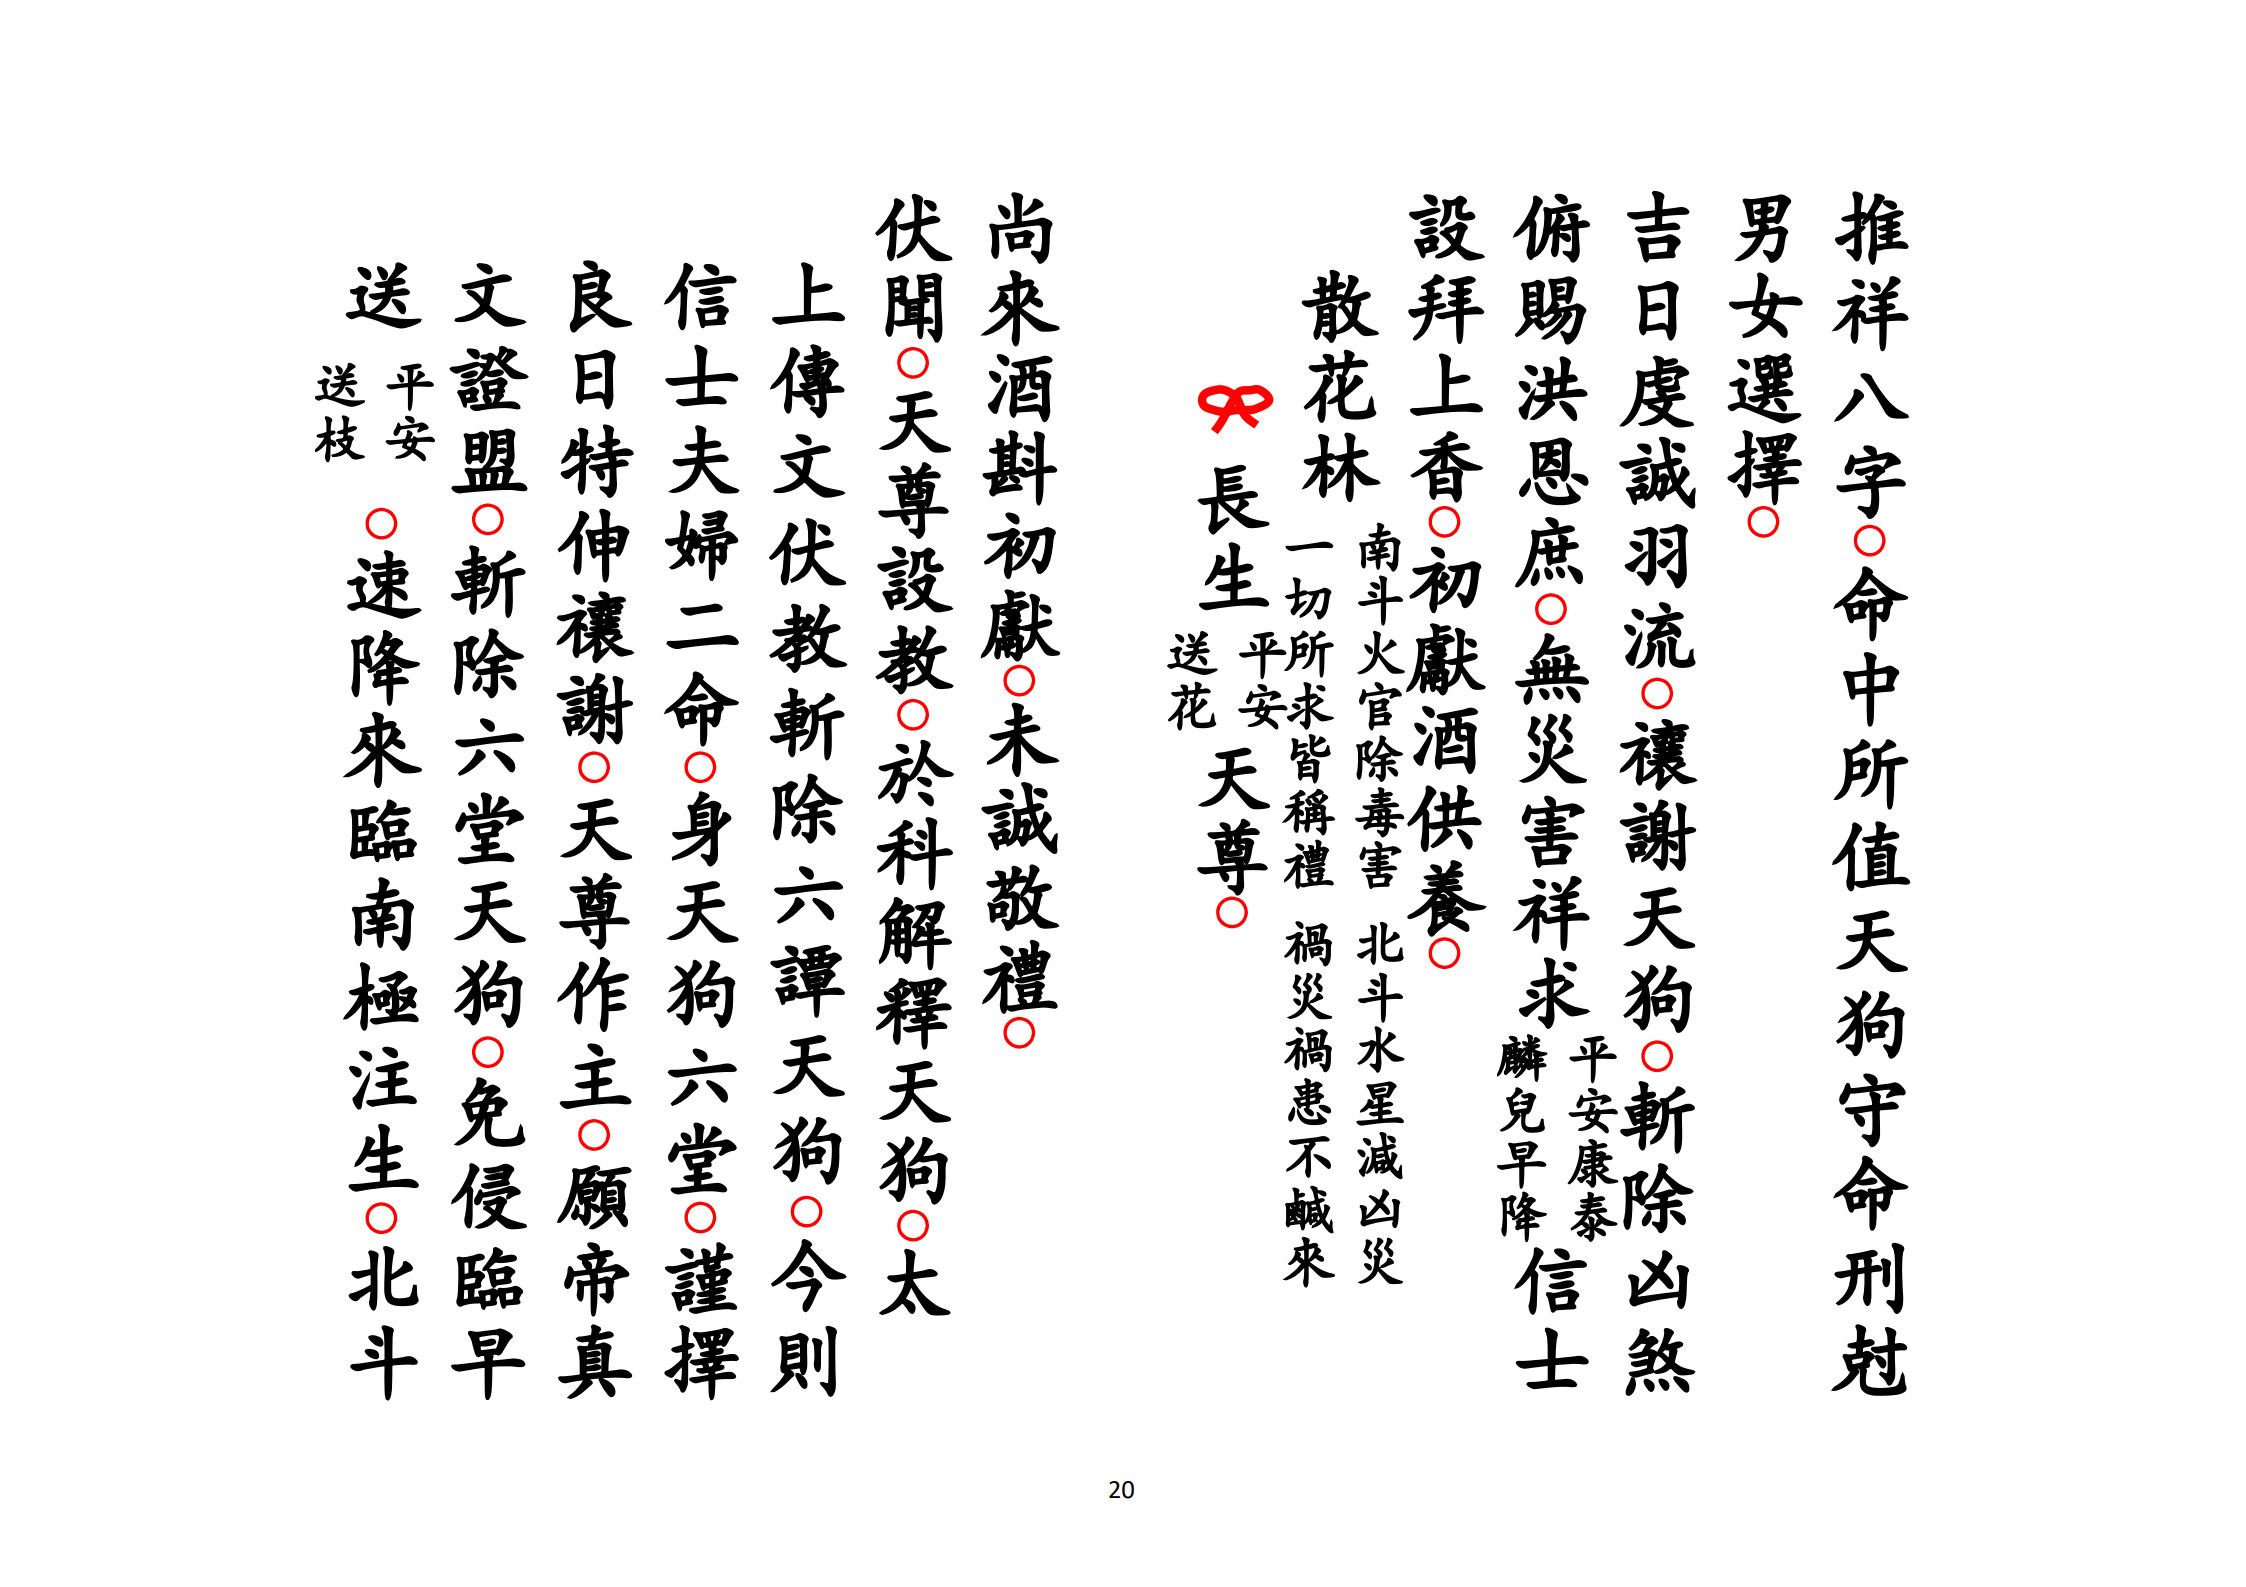 推祥八字○命中所值天狗守命刑尅
男女選擇○
吉日虔誠羽流○禳謝天狗○斬除凶煞
俯賜洪恩庶○無災害祥求平安康泰麟兒早降信士
設拜上香○初獻酒供養○
散花林南斗火官除毒害 北斗水星減凶災
一切所求皆稱禮 禍災禍患不鹹來
長生平安送花天尊○
尚來酒斟初獻○未誠敬禮○
伏聞○天尊設教○於科解釋天狗○太
上傳文伏教斬除六譚天狗○今則
信士夫婦二命○身天狗六堂○謹擇
良日特伸禳謝○天尊作主○願帝真
文證盟○斬除六堂天狗○免侵臨早
送平安送枝○速降來臨南極注生○北斗
20